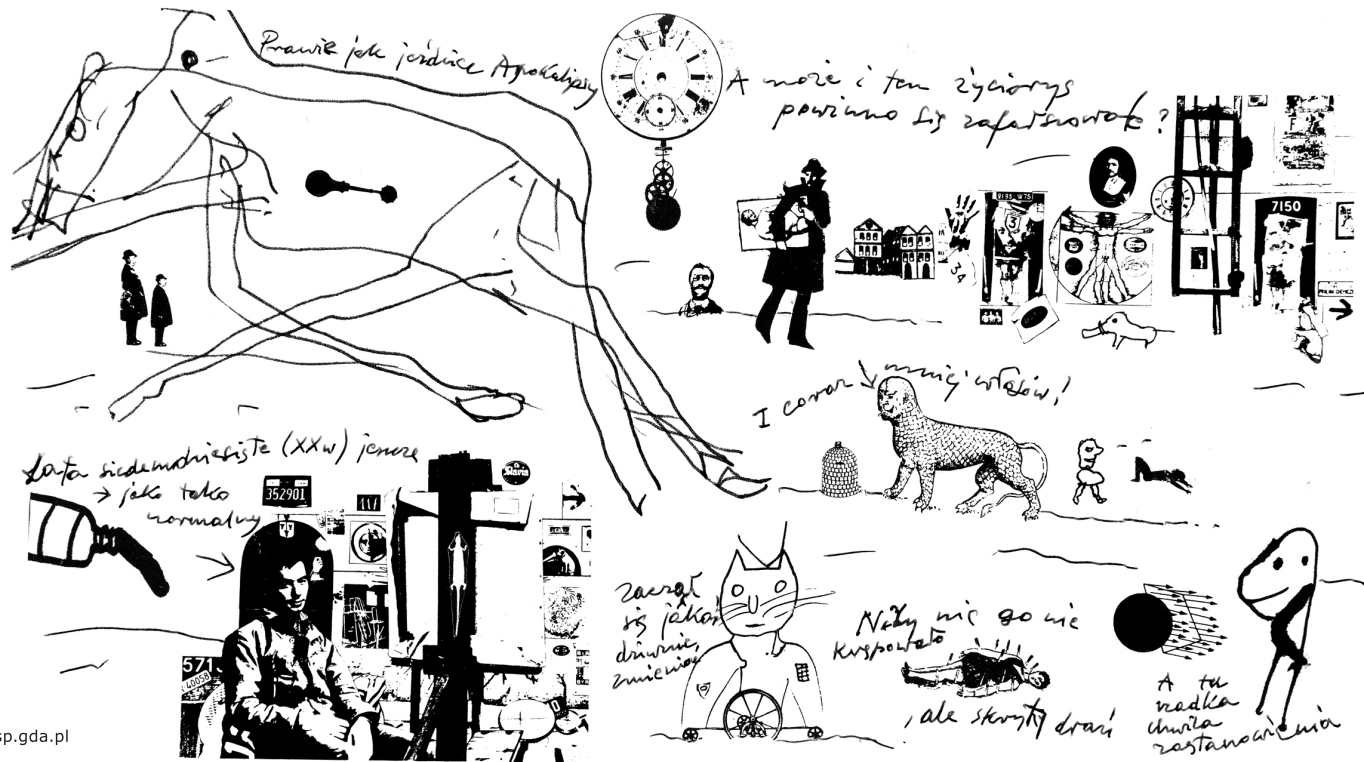 Prawie jak jeźdźce Apokalipsy
A może i ten życiorys
powinno się zafałszować?
9195 W 75
3
34
7150
I coraz mniej włosów!
Lata siedemdziesiąte (XXw) jeszcze
→ jako tako
normalny
352901
Slavia
571
40058
Zaczął
się jakoś
dziwnie,
zmieniać
Niby nic go nie
krępowało
, ale skryty drań
A tu
rzadka
chwila
zastanowienia
sp.gda.pl